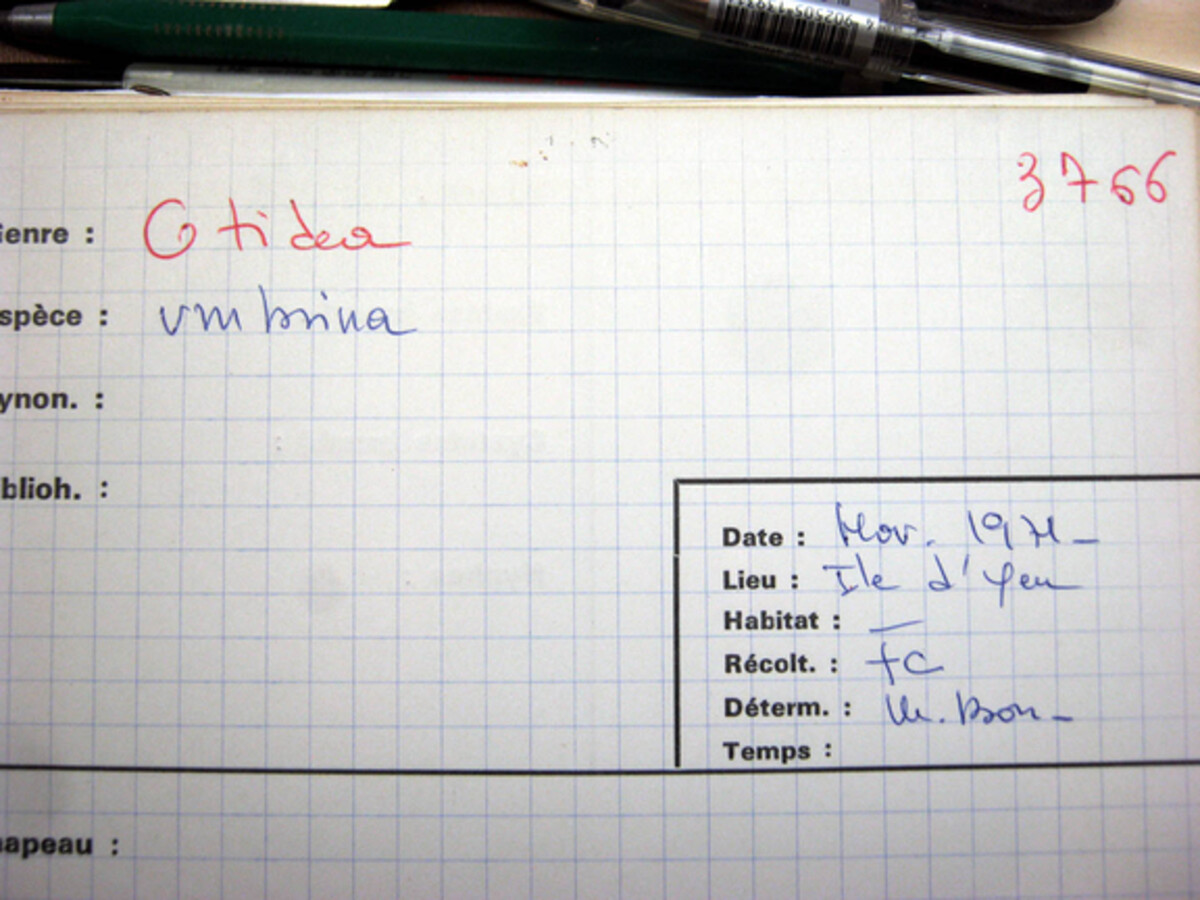 3766
ienre : Otidea
spèce : umbrina
ynon. :
blioh. :
Date : Nov. 1971 -
Lieu : Ile d'Yeu
Habitat : —
Récolt. : FC
Déterm. : M. Bon -
Temps :
apeau :